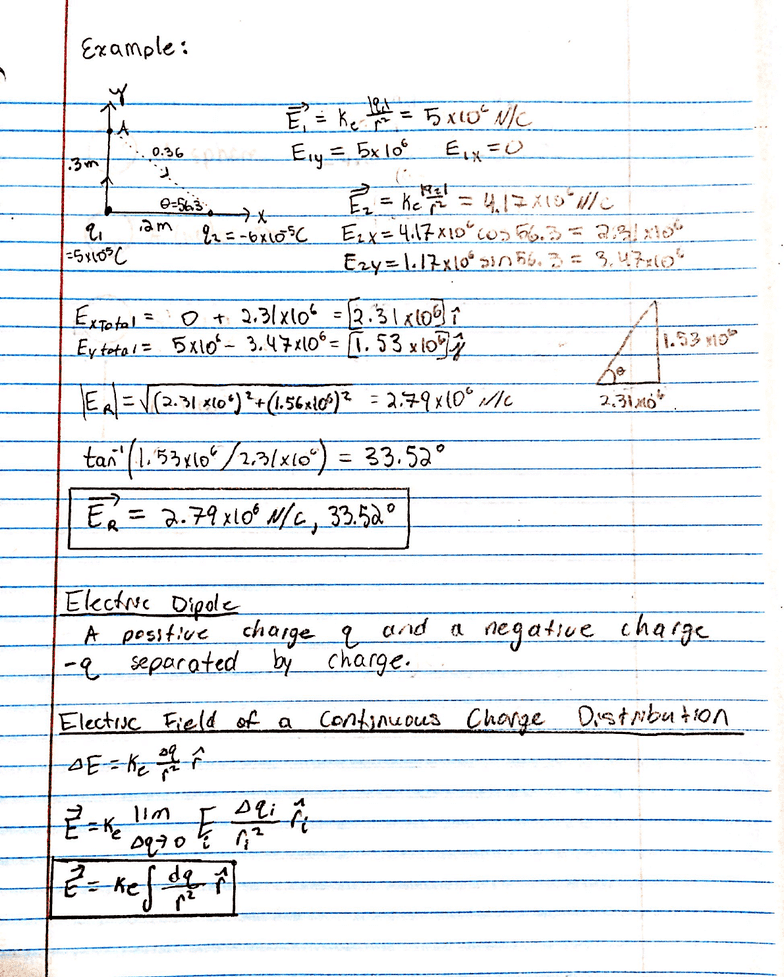 Example:
y
A
.3m
0.36
θ=56.3
x
.2m
q₁
=5x10⁵C
q₂=-6x10⁵C
E⃗₁ = Ke |q₁|/r² = 5x10⁶ N/C
E₁y = 5x10⁶ E₁x = 0
E⃗₂ = Ke |q₂|/r² = 4.17x10⁶ N/C
E₂x = 4.17x10⁶ cos 56.3 = 2.31x10⁶
E₂y = 1.17x10⁶ sin 56.3 = 3.47x10⁶
ExTotal = 0 + 2.31x10⁶ = [2.31x10⁶] î
Ey total = 5x10⁶ - 3.47x10⁶ = [1.53x10⁶] ĵ
1.53x10⁶
θ
2.31x10⁶
|E_R| = √(2.31x10⁶)²+(1.56x10⁶)² = 2.79x10⁶ N/C
tan⁻¹(1.53x10⁶/2.31x10⁶) = 33.52°
E⃗_R = 2.79x10⁶ N/C, 33.52°
Electric Dipole
A positive charge q and a negative charge
-q separated by charge.
Electric Field of a Continuous Charge Distribution
ΔE = Ke Δq/r² r̂
E⃗ = Ke lim Δq→0 Σᵢ Δqᵢ/rᵢ² r̂ᵢ
E⃗ = Ke ∫ dq/r² r̂